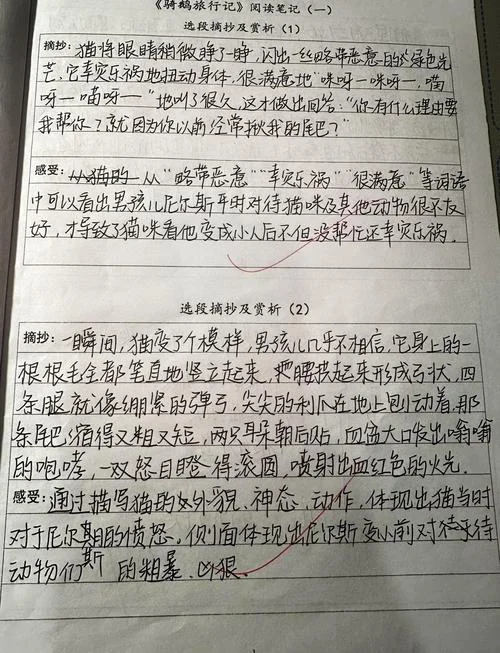 《骑鹅旅行记》阅读笔记（一）
选段摘抄及赏析（1）
摘抄：猫将眼睛稍微睁了一睁，闪出一丝略带恶意的绿色光
芒。它幸灾乐祸地扭动身体，很满意地“咪呀一咪呀一，喵
呀一喵呀一”地叫了很久，这才做出回答：“你有什么理由要
我帮你？就因为你以前经常揪我的尾巴？”
感受：从猫的 从“略带恶意”“幸灾乐祸”“很满意”等词语
中可以看出男孩儿尼尔斯平时对待猫咪及其他动物很不友
好，才导致了猫咪看他变成小人后不但没帮忙还幸灾乐祸。
选段摘抄及赏析（2）
摘抄：一瞬间，猫变了个模样，男孩儿几乎不相信，它身上的一
根根毛全都笔直地竖立起来，把腰拱起来形成弓状，四
条腿就像绷紧的弹弓，尖尖的利爪在地上刨动着，那
条尾巴缩得又粗又短，两只耳朵朝后贴，血盆大口发出嗡嗡
的咆哮，一双怒目瞪得滚圆，喷射出血红色的火光。
感受：通过描写猫的外貌、神态、动作，体现出猫当时
对于尼尔斯的愤怒。侧面体现出尼尔斯变小前对待
动物们 的粗暴、凶狠。